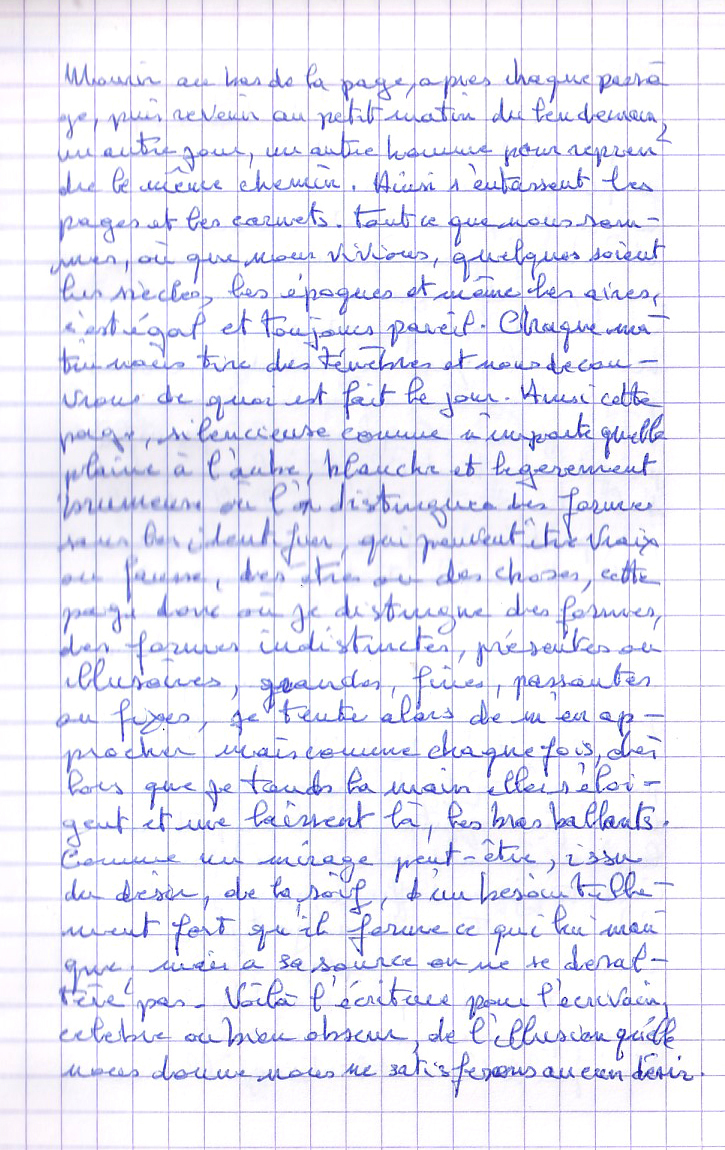 Mourir au bas de la page, après chaque passa
ge, puis revenir au petit matin du lendemain,
un autre jour, un autre homme pour repren
dre le même chemin. Ainsi s'entassent les
pages et les carnets. tout ce que nous som-
mes, où que nous vivions, quelques soient
les siècles, les époques et même les aires,
c'est égal et toujours pareil. Chaque ma
tin nous tire des ténèbres et nous décou-
vrons de quoi est fait le jour. Ainsi cette
page, silencieuse comme n'importe quelle
plaine à l'aube, blanche et legerement
brumeuse où l'on distingue des formes
sans les identifier, qui peuvent être vraies
ou fausse, des etres ou des choses, cette
page donc où je distingue des formes,
des formes indistinctes, présentes ou
illusoires, grandes, fines, passantes
ou fixes, je tente alors de m'en ap-
procher mais comme chaque fois, dès
lors que je tends la main elles s'éloi-
gent et me laissent là, les bras ballants.
Comme un mirage peut-être, issu
du désir, de la soif, d'un besoin telle-
ment fort qu'il forme ce qui lui man
que, mais a sa source on ne se désal-
tère pas - Voilà l'écriture pour l'écrivain,
celebre ou bien obscur, de l'illusion qu'elle
nous donne nous ne satisferons aucun désir.